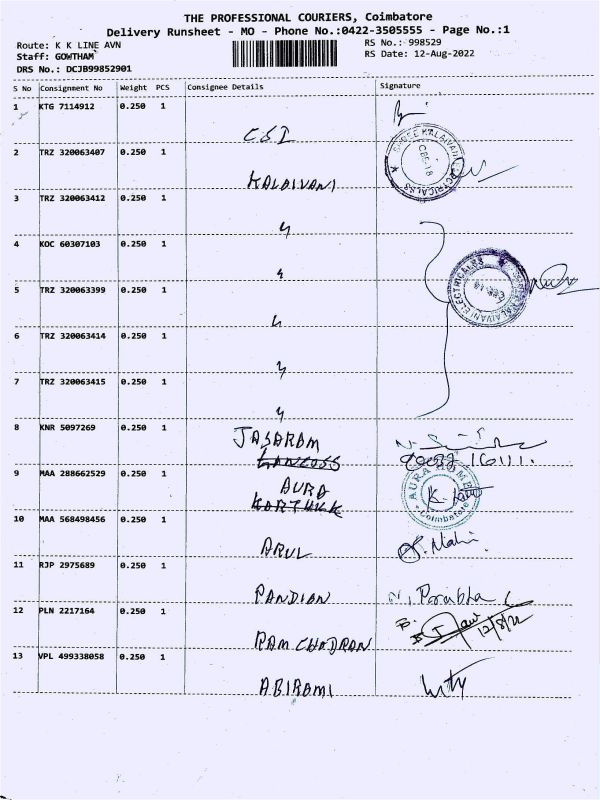 THE PROFESSIONAL COURIERS, Coimbatore
Delivery Runsheet - MO - Phone No.:0422-3505555 - Page No.:1
Route: K K LINE AVN
RS No.: 998529
Staff: GOWTHAM
RS Date: 12-Aug-2022
DRS No.: DCJB99852901
S No Consignment No Weight PCS Consignee Details Signature
1 KTG 7114912 0.250 1
CSI
2 TRZ 320063407 0.250 1
KALAIVANI
SHREE KALAIVANI ELECTRICALSS
CBE-18
3 TRZ 320063412 0.250 1
4 KOC 60307103 0.250 1
5 TRZ 320063399 0.250 1
KALAIVANI ELECTRICALSS
6 TRZ 320063414 0.250 1
7 TRZ 320063415 0.250 1
8 KNR 5097269 0.250 1
JASARAM
9 MAA 288662529 0.250 1
AURA
KARTHIK
AURA HOME
Coimbatore
10 MAA 568498456 0.250 1
ARUL
11 RJP 2975689 0.250 1
PANDIAN
N. Prabha
12 PLN 2217164 0.250 1
RAM CHADRAN
12/8/22
13 VPL 499338058 0.250 1
ABIRAMI